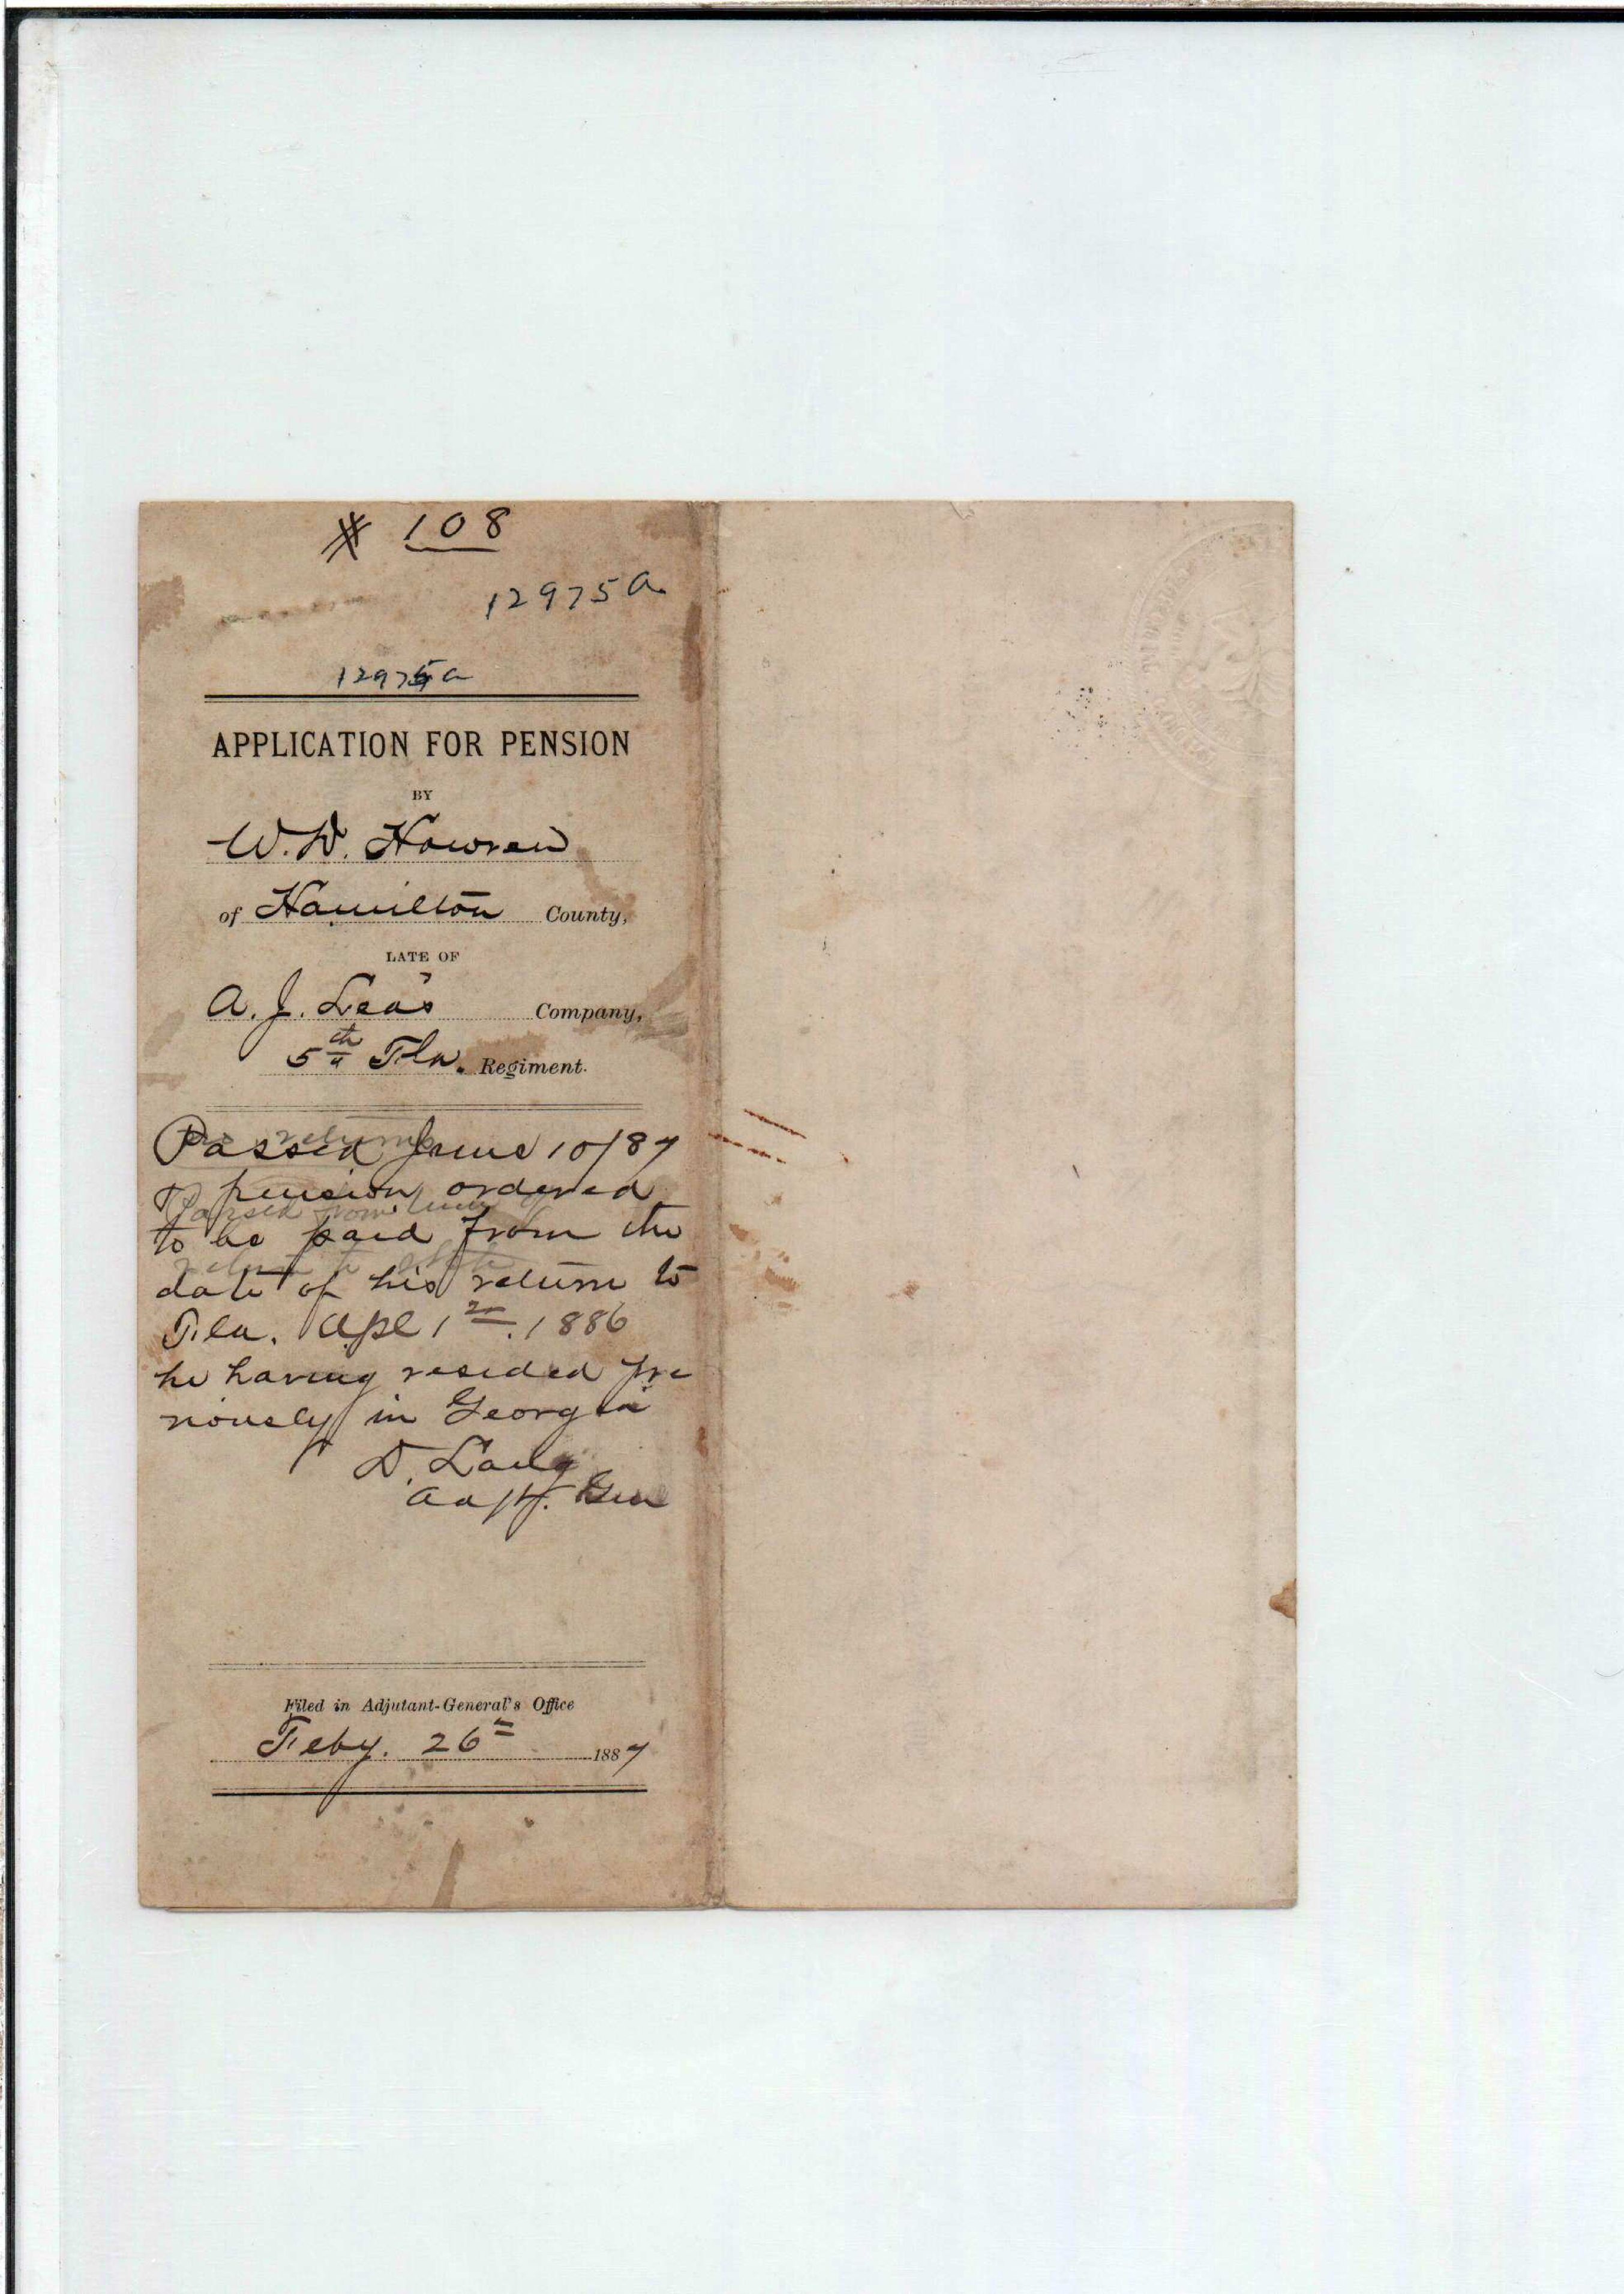 # 108
12975 a
12975 a
APPLICATION FOR PENSION
BY
W. D. Howren
of Hamilton County,
LATE OF
A. J. Lea's Company,
5th Fla. Regiment.
Passed June 10/87
& pension ordered
to be paid from the
date of his return to
Fla. Apl 1st. 1886
he having resided pre
viously in Georgia
D. Lang
Adjt. Gen
Filed in Adjutant-General's Office
Feby. 26th 1887